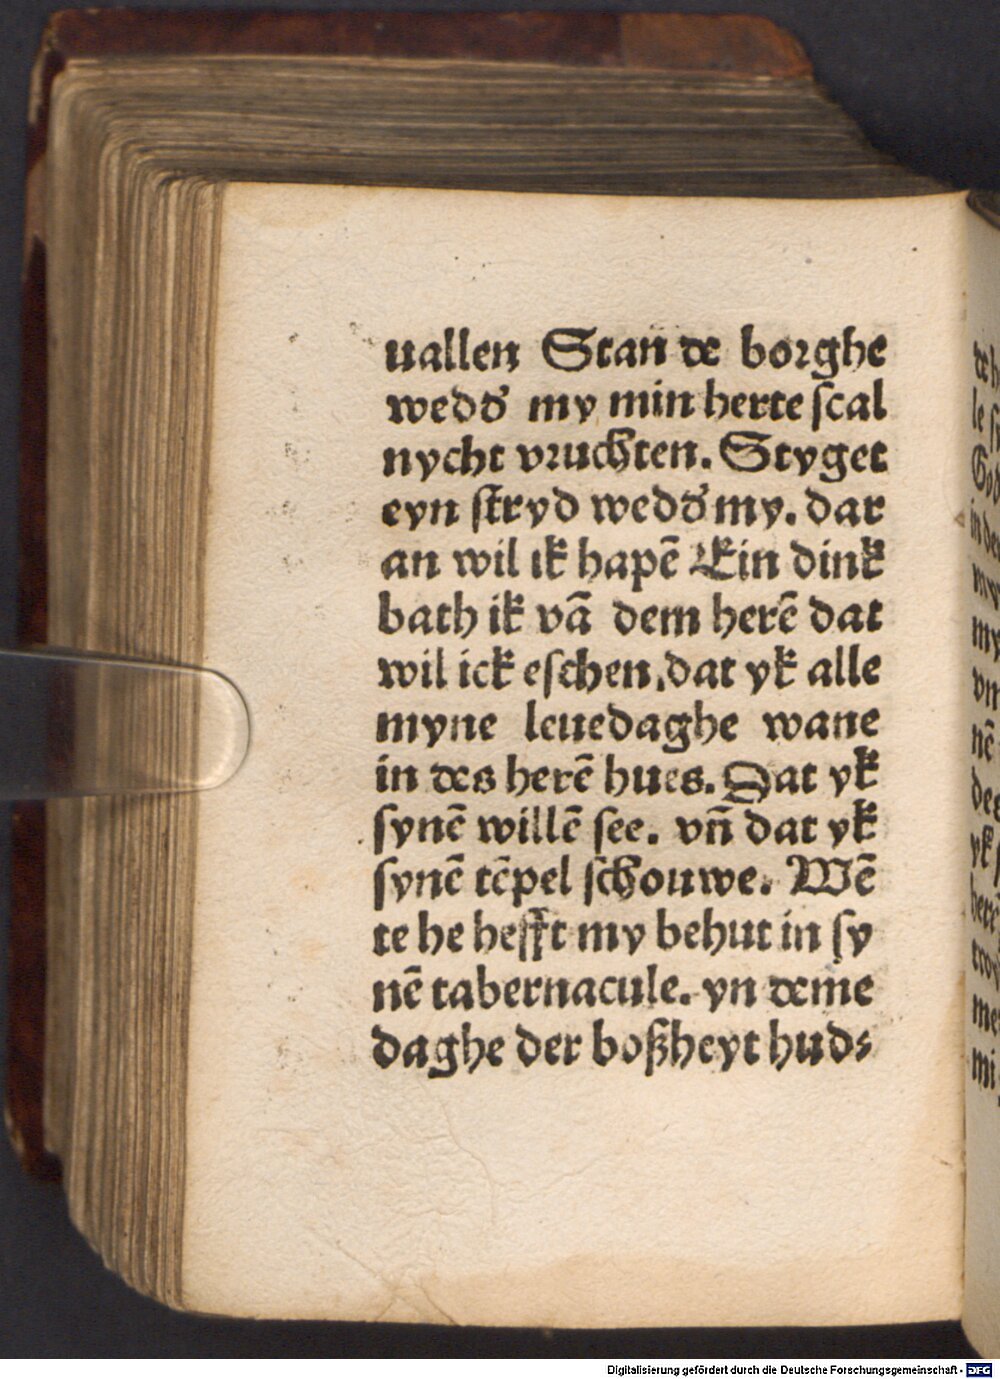 uallen Stan de borghe
wedd᷑ my min herte ſcal
nycht vruchten. Styget
eyn ſtryd wedd᷑ my. dar
an wil ik hapē Ein dink
bath ik vā dem herē dat
wil ick eſchen. dat yk alle
myne leuedaghe wane
in des herē hues. Dat yk
ſynē willē ſee. vn̄ dat yk
ſynē tēpel ſchouwe. Wē
te he hefft my behut in ſy
nē tabernacule. yn deme
daghe der boßheyt hud⸗
Digitalisierung gefördert durch die Deutsche Forschungsgemeinschaft - DFG